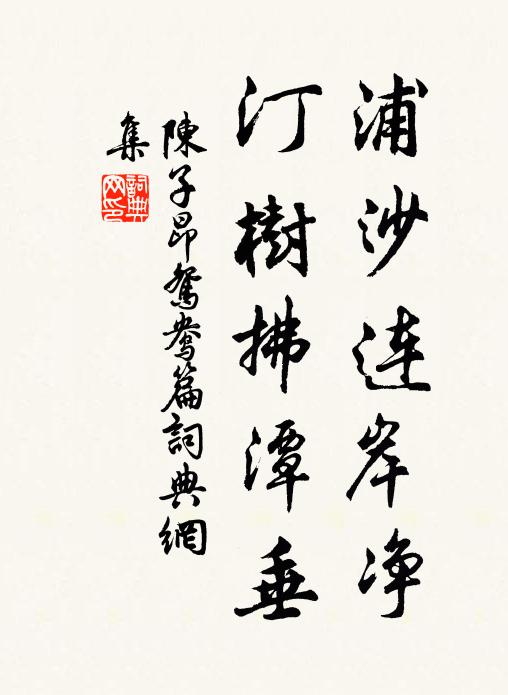 浦沙连岸净
汀樹拂潭垂
陳子昂鴛鴦篇詞典網
集
詞典
网印